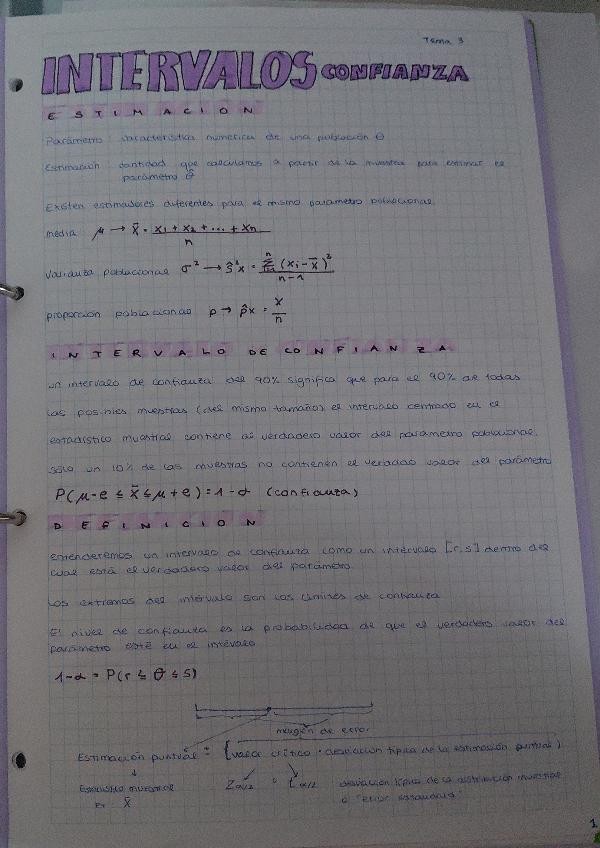 Tema 3
INTERVALOS CONFIANZA
ESTIMACIÓN
Parámetro: característica numérica de una población θ
Estimación: cantidad que calculamos a partir de la muestra para estimar el
parámetro θ̂
Existen estimadores diferentes para el mismo parámetro poblacional.
media μ → x̄ = (x1 + x2 + ... + xn) / n
Varianza poblacional σ² → ŝ²x = Σ(i=1, n) (xi - x̄)² / (n-1)
proporción poblacional p → p̂x = x / n
INTERVALO DE CONFIANZA
Un intervalo de confianza del 90% significa que para el 90% de todas
las posibles muestras (del mismo tamaño) el intervalo centrado en el
estadístico muestral contiene al verdadero valor del parámetro poblacional.
Sólo un 10% de las muestras no contienen el verdadero valor del parámetro
P(μ-e ≤ x̄ ≤ μ+e) = 1-α (confianza)
DEFINICIÓN
Entenderemos un intervalo de confianza como un intervalo [r,s] dentro del
cual está el verdadero valor del parámetro.
Los extremos del intervalo son los límites de confianza
El nivel de confianza es la probabilidad de que el verdadero valor del
parámetro esté en el intervalo
1-α = P(r ≤ θ ≤ s)
margen de error
Estimación puntual ± (valor crítico · desviación típica de la estimación puntual)
Estadístico muestral
Ej: x̄
Zα/2 o tα/2
desviación típica de la distribución muestral
o "error estándar"
1